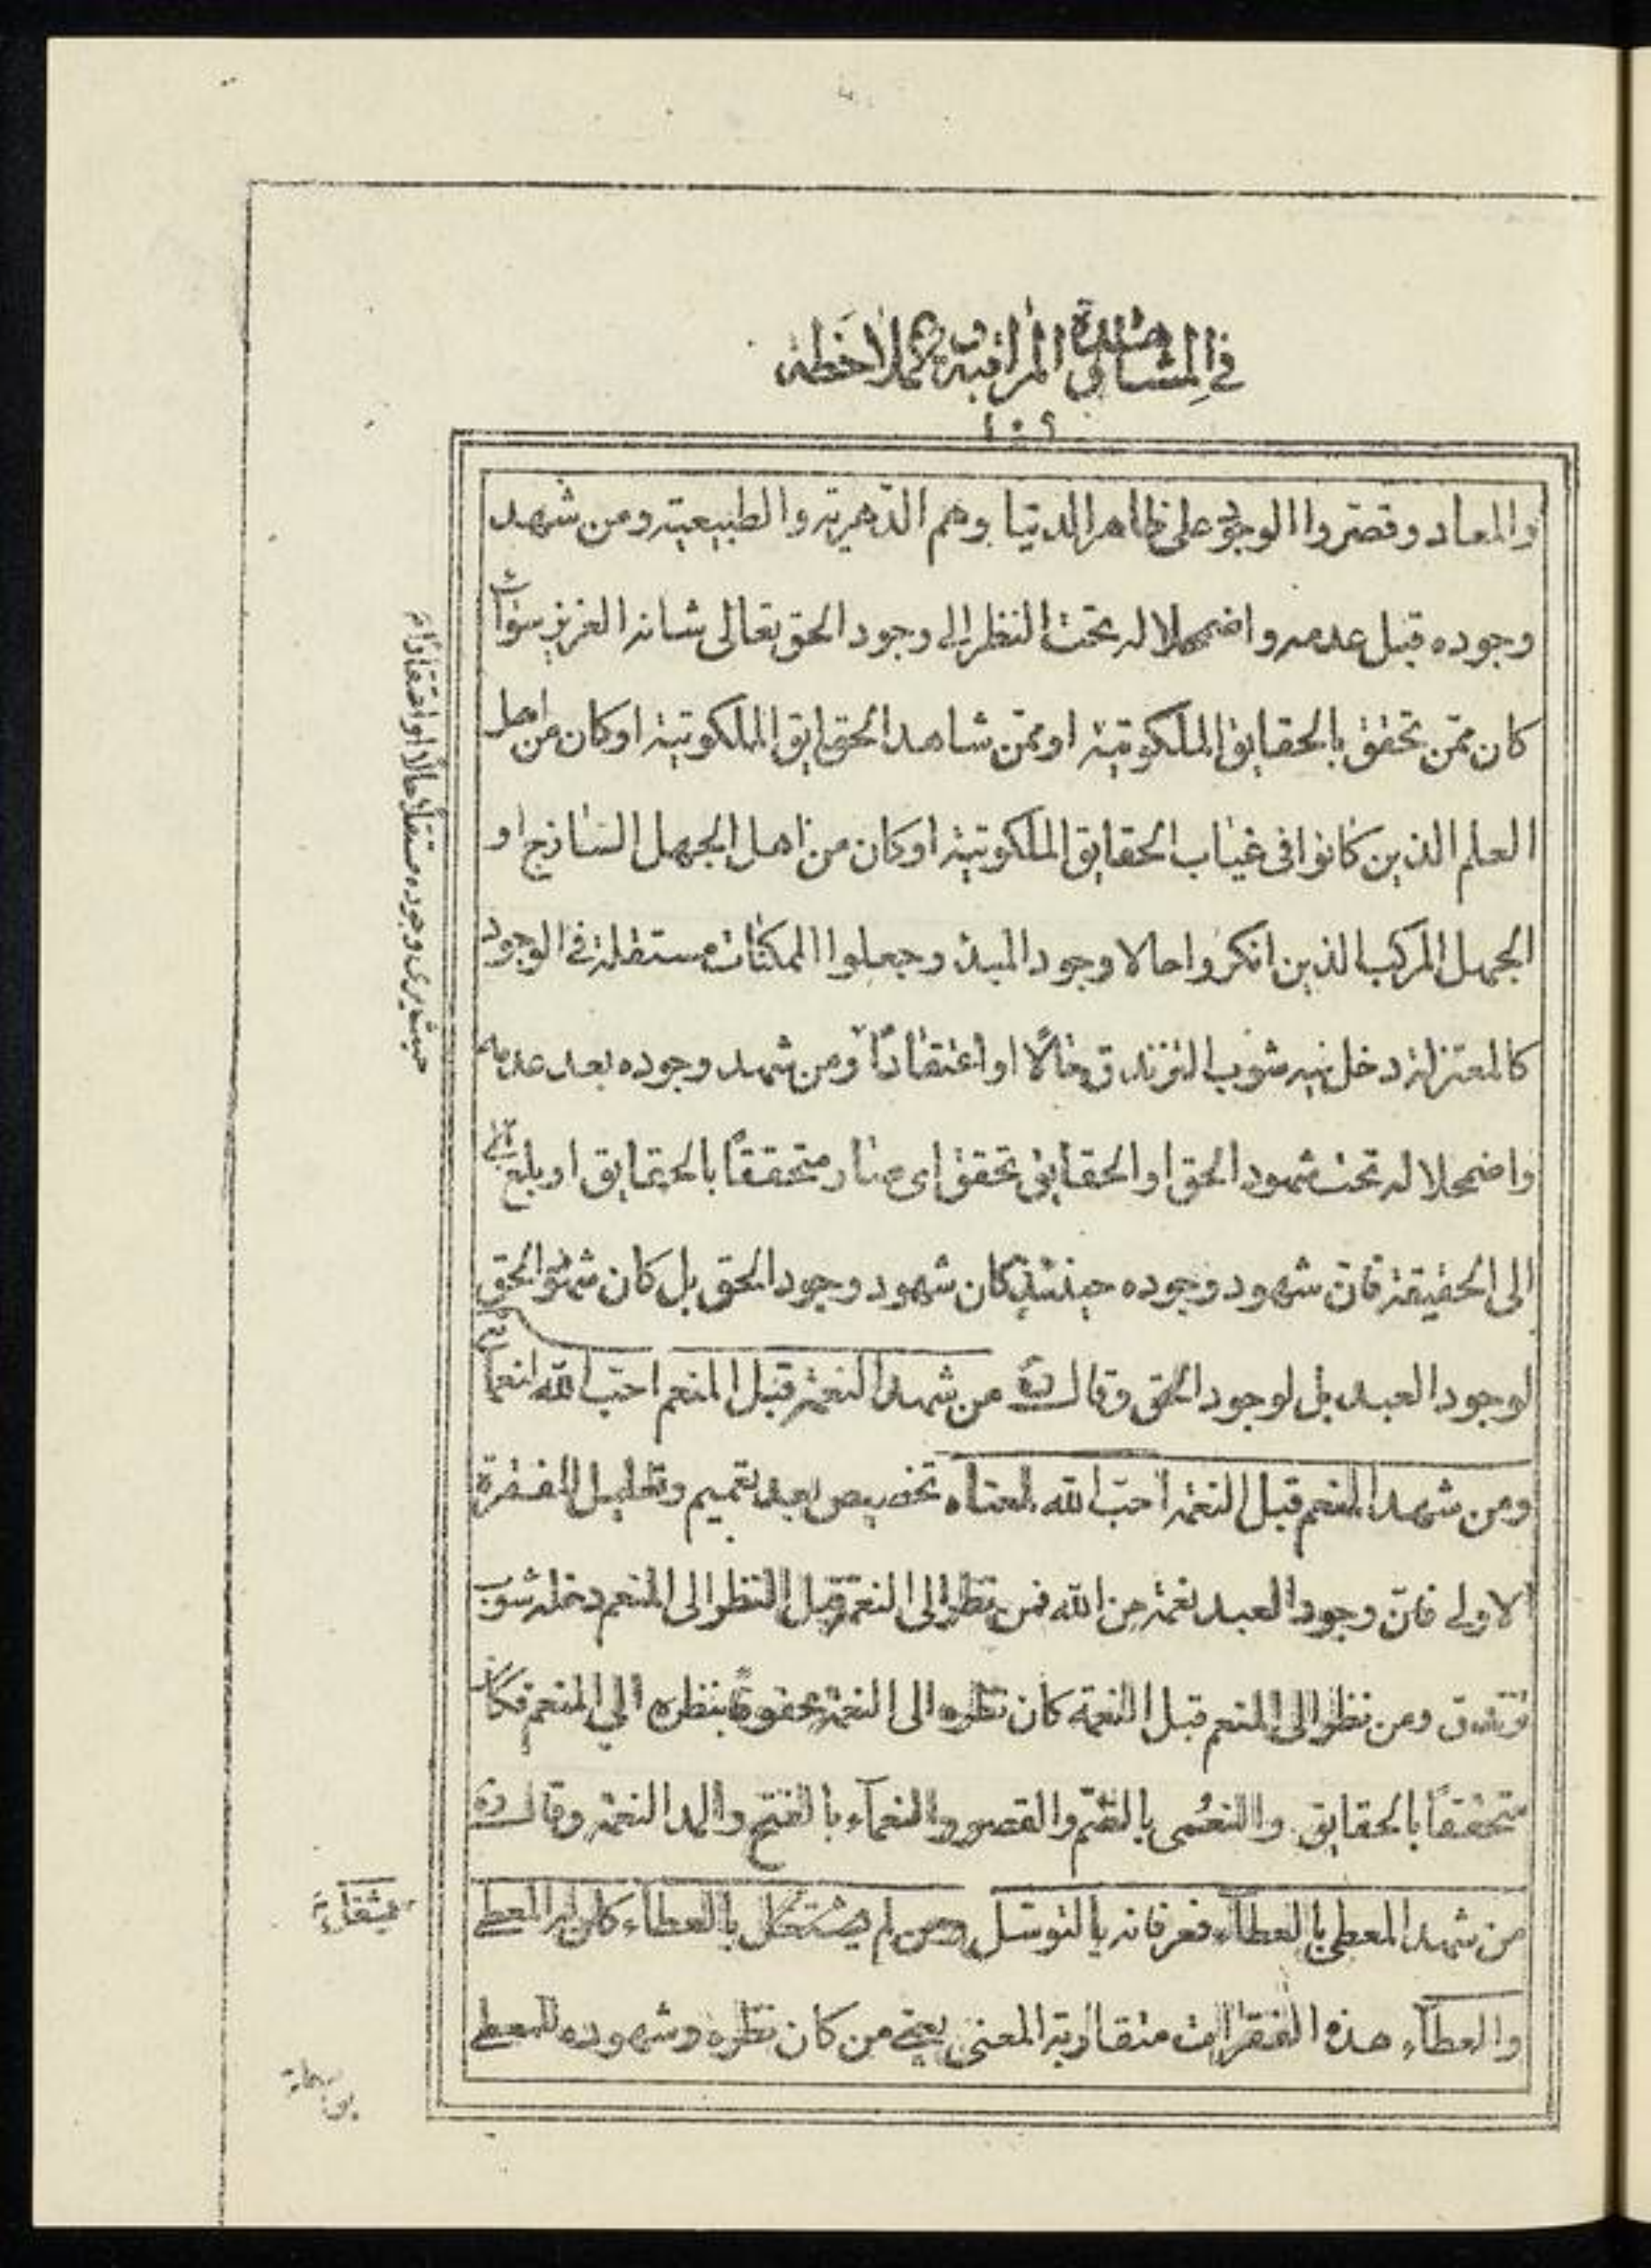 في المشاهدة و المراقبة و الملاحظة
١٠٩
والمعاد وقصروا الوجود على ظاهر الدنيا وهم الدهرية والطبيعية ومن شهد
وجوده قبل عدمه واضمحلاله تحت النظر إلى وجود الحق تعالى شانه العزيز سواء
كان ممن تحقق بالحقايق الملكوتية او ممن شاهد الحقايق الملكوتية او كان من اهل
العلم الذين كانوا في غياب الحقايق الملكوتية او كان من اهل الجهل الساذج او
الجهل المركب الذين انكروا حالا وجود المبدء وجعلوا الممكنات مستقلة في الوجود
كالمعتزلة دخل فيه شوب التزندق حالًا او اعتقادًا ومن شهد وجوده بعد عدمه
واضمحلاله تحت شهود الحق او الحقايق تحقق اى صار متحققًا بالحقايق او بلغ
الى الحقيقة فان شهود وجوده حينئذٍ كان شهود وجود الحق بل كان شهود الحق
لوجود العبد بل لوجود الحق وقال ره من شهد النعمة قبل المنعم احب الله انعما
ومن شهد المنعم قبل النعمة احب الله لمعناه تخصيص بعد تعميم وتعليل للفقرة
الاولى فان وجود العبد نعمة من الله فمن نظر الى النعمة قبل النظر الى المنعم دخله شوب
تزندق ومن نظر الى المنعم قبل النعمة كان نظره الى النعمة محفوفًا بنظره الى المنعم فكان
متحققًا بالحقايق والنعمى بالضم والقصر والنعمآء بالفتح والمد النعمة وقال ره
من شهد المعطى بالعطآء فعرفانه بالتوسل ومن لم يشتغل بالعطآء كان له المعطى
والعطآء هذه الفقرات متقاربة المعنى يعنى من كان نظره وشهوده للمعطى
حيث يرى وجوده مستقلًا حالًا او اعتقادًا